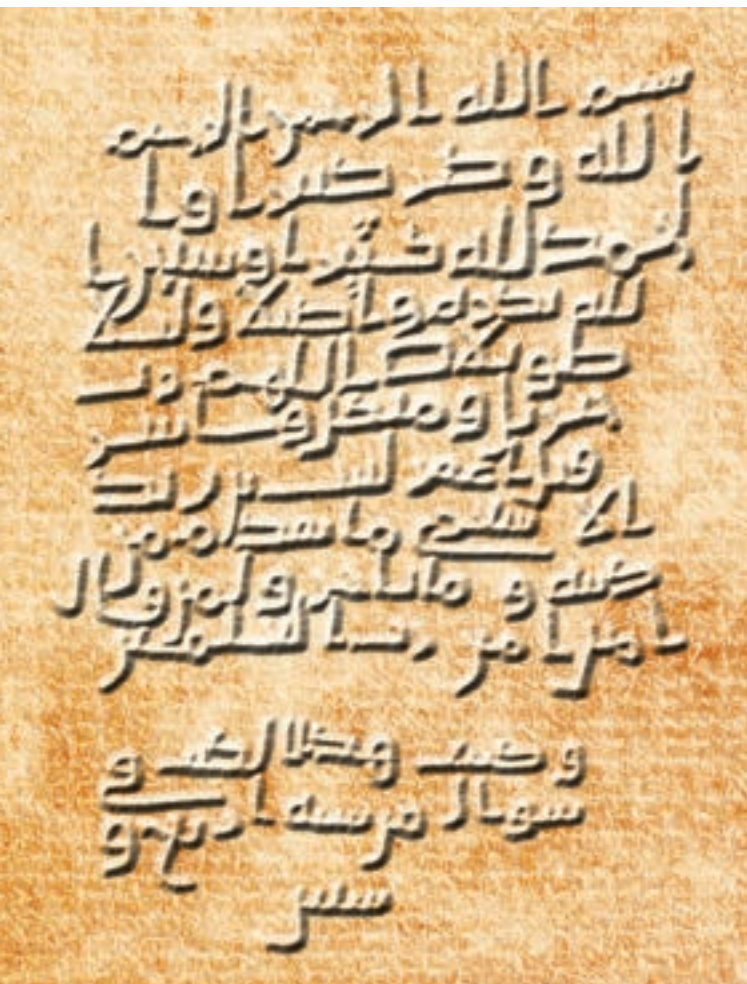 بسم الله الرحمن الرحيم
الله وكبر كبيرا وا
لحمد لله كثيرا وسبحن ا
لله بكرة واصيلا وليلا
طويلا اللهم رب
جبريل وميكل واسر
فيل اغفر لثبت بن يزيد
الاشعري ما تقدم من
ذنبه وما تاخر ولمن قال
امين امين رب العلمين
وكتب هذا الكتب في
شوال من سنة اربع و
ستين